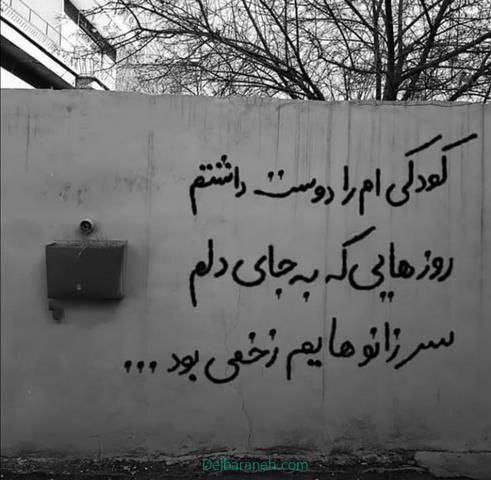 کودکی ام را دوست داشتم
روزهایی که به جای دلم
سر زانوهایم زخمی بود ...
Delbaraneh.com